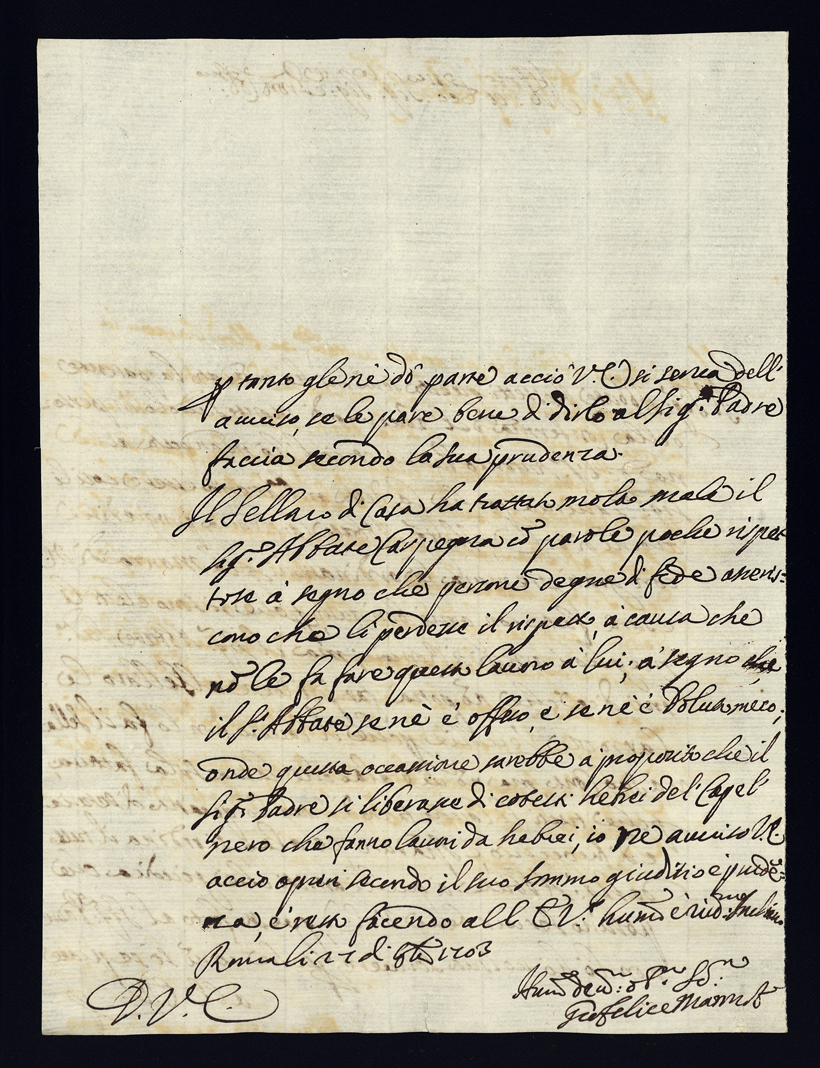 p tanto gle nè dò parte acciò V.E. si serva dell'
avviso, se le pare bene di dirlo al Sig.r Padre
faccia secondo la sua prudenza.
Il Sellaro di Casa ha trattato molto male il
Sig.r Abbate Carpegna cō parole poche rispet
tose à segno che persone degne di fede asseris=
cono che li perdesse il rispetto, à causa che
nō le fa fare questo lavoro à lui; à segno che
il S.r Abbate se nè è offeso, e se nè è doluto meco;
onde questa occasione sarebbe a proposito che il
Sig.r Padre si liberasse di cotesti hebrei del Capel
nero che fanno lavori da hebrei, io ne avviso V.E.
acciò operi secondo il suo sommo giuditio e prudē=
za, e resto facendo all' E.V. hum.e riv.ma inchino
Roma li 27 di 8bre 1703
D. V. E.
Hum.o dev.mo ob.mo S.re
Gio Felice